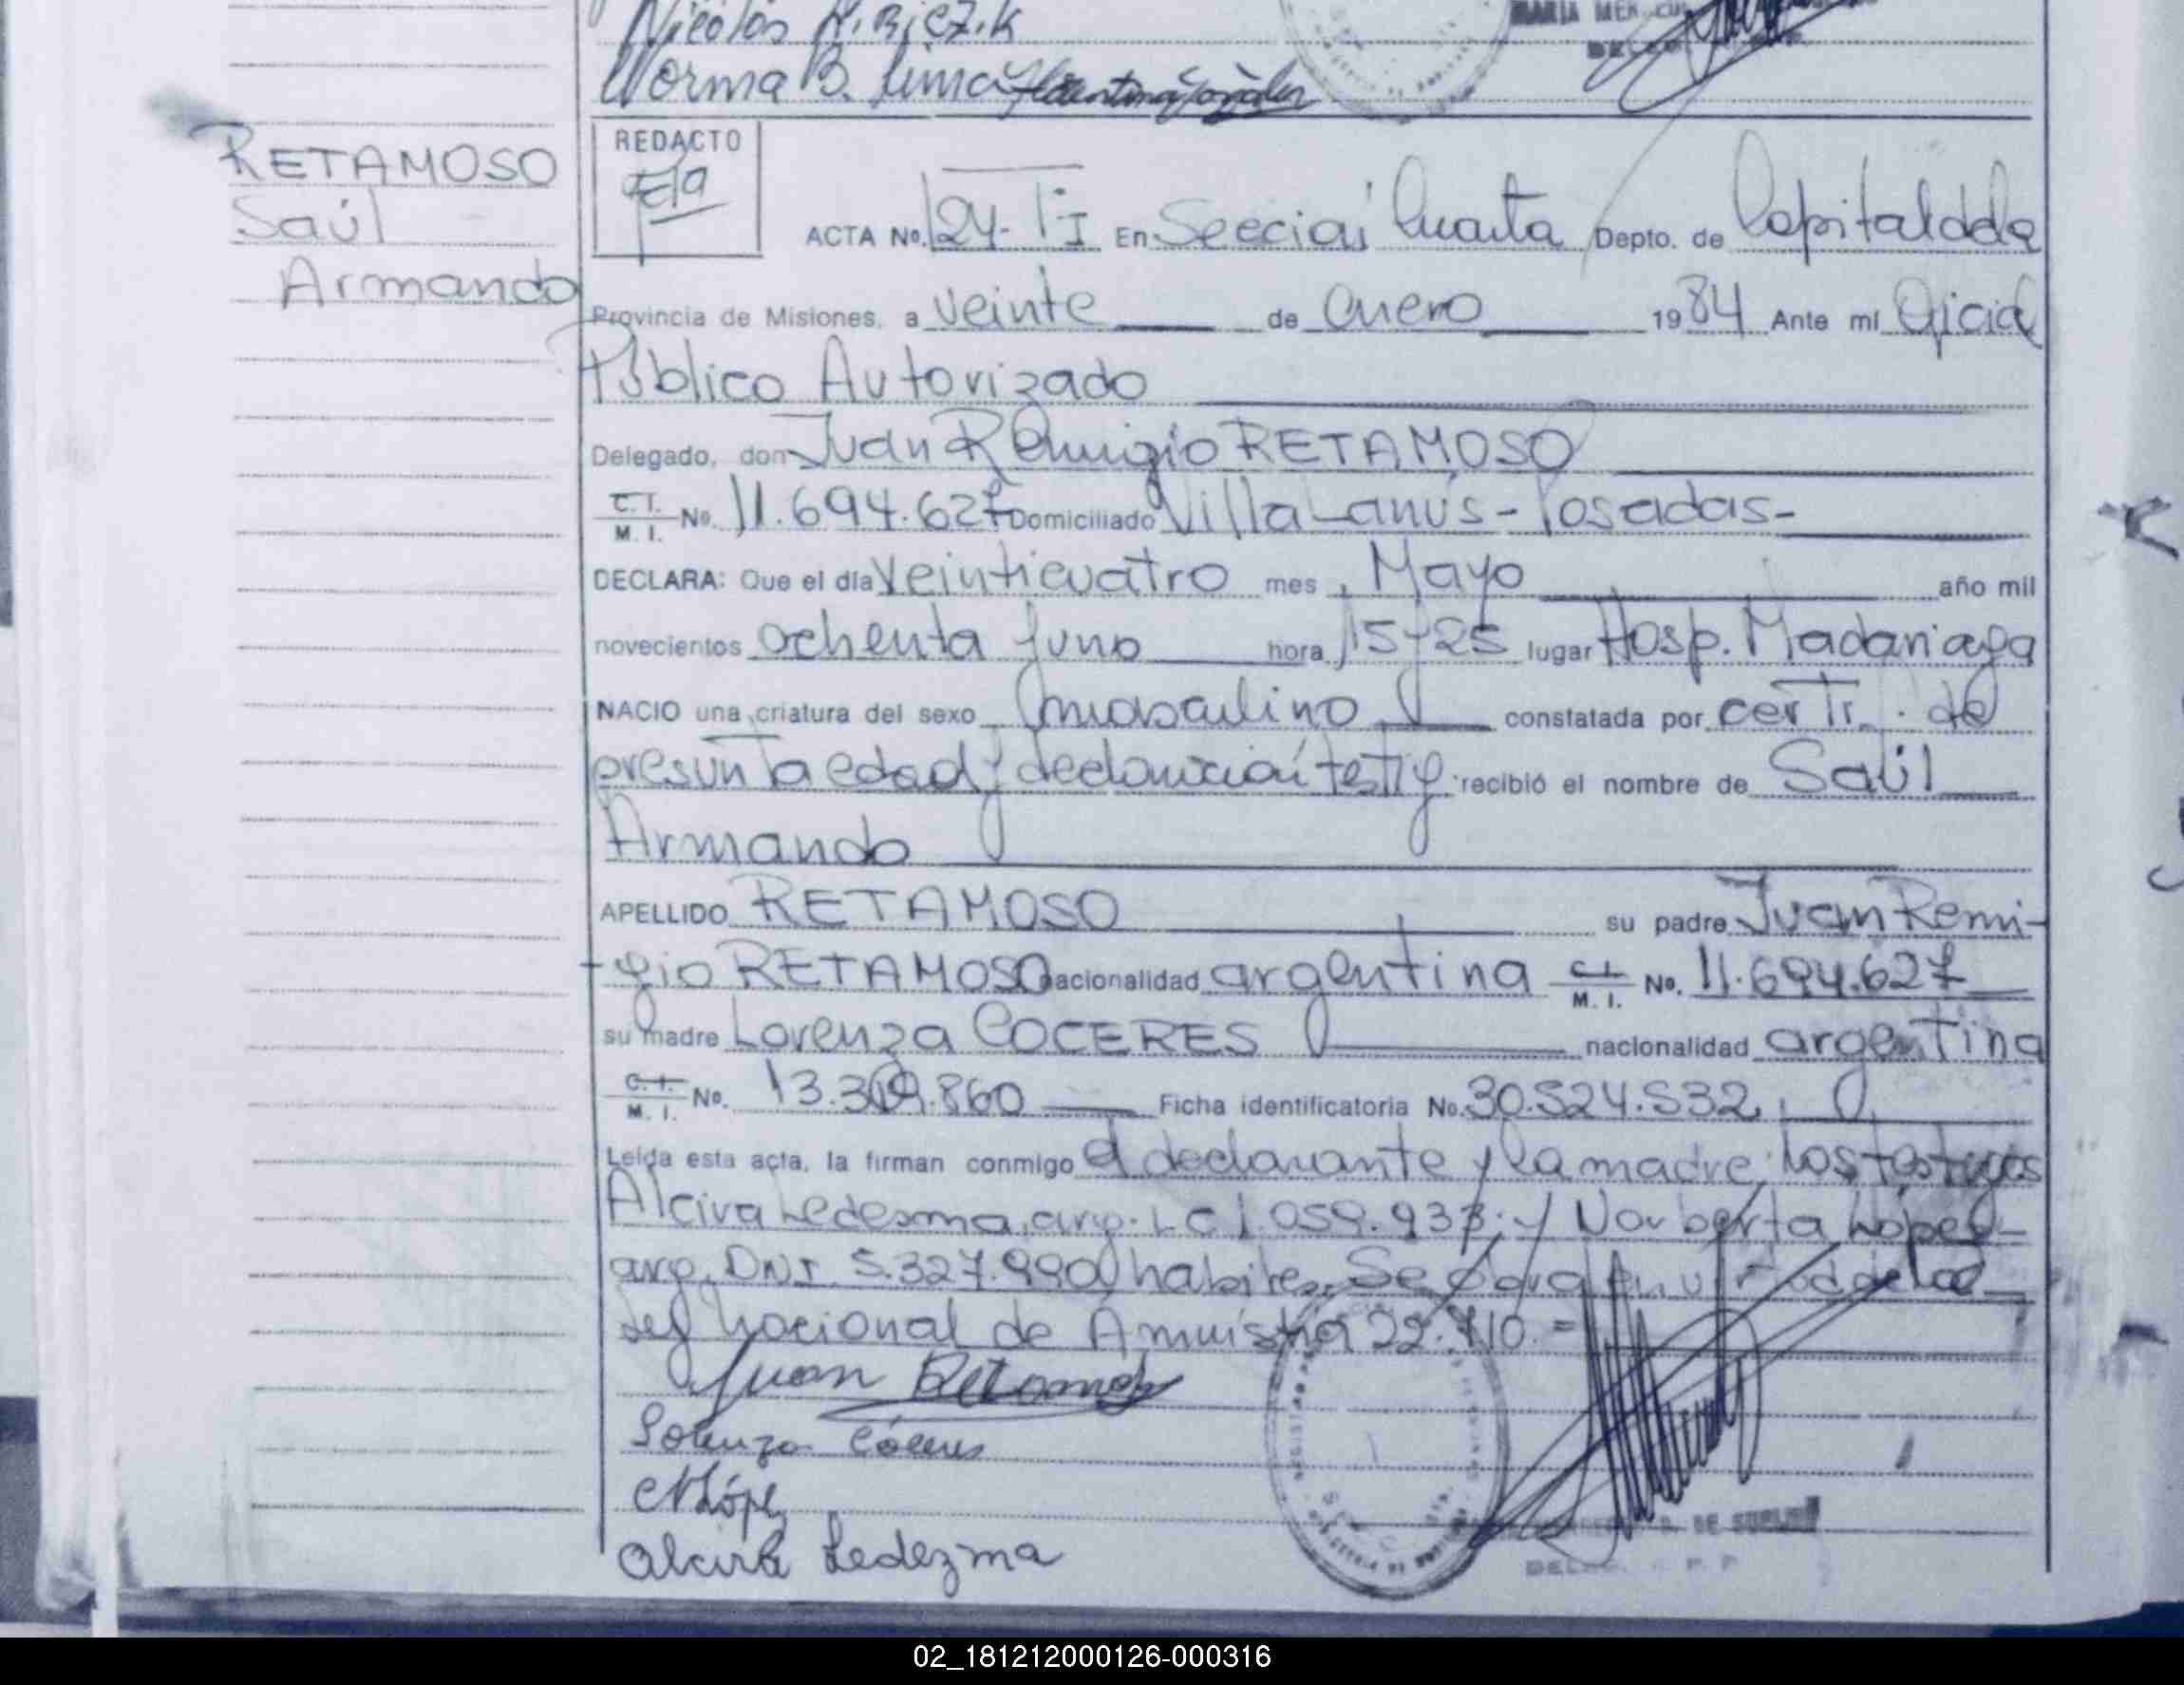 Nicolás
Norma B. Lima
MARIA MER
RETAMOSO
Saúl
Armando
REDACTO
ACTA No. 124-TI En Sección Cuarta Depto. de Capital de la
Provincia de Misiones, a veinte de enero 1984 Ante mí Oficial
Público Autorizado
Delegado, don Juan Remigio RETAMOSO
C.I. M. I. No. 11.694.627 Domiciliado Villa Lanús - Posadas -
DECLARA: Que el día Veinticuatro mes Mayo año mil
novecientos ochenta y uno hora 15 y 25 lugar Hosp. Madariaga
NACIO una criatura del sexo masculino constatada por certi. de
presunta edad y declaración testig. recibió el nombre de Saúl
Armando
APELLIDO RETAMOSO su padre Juan Remi-
-gio RETAMOSO nacionalidad argentina C.I. M. I. No. 11.694.627
su madre Lorenza COCERES nacionalidad argentina
C.I. M. I. No. 13.860 Ficha identificatoria No. 30.524.532
Leída esta acta, la firman conmigo el declarante y la madre, los testigos
Alcira Ledesma, arg. LC 1.059.933; y Norberta López
arg. DNI. 5.327.990, habiles. Se labra en virtud de la
Ley Nacional de Amnistía 22.410.=
Juan Retamoso
Lorenza Cóceres
N López
Alcira Ledezma
DE
02_181212000126-000316